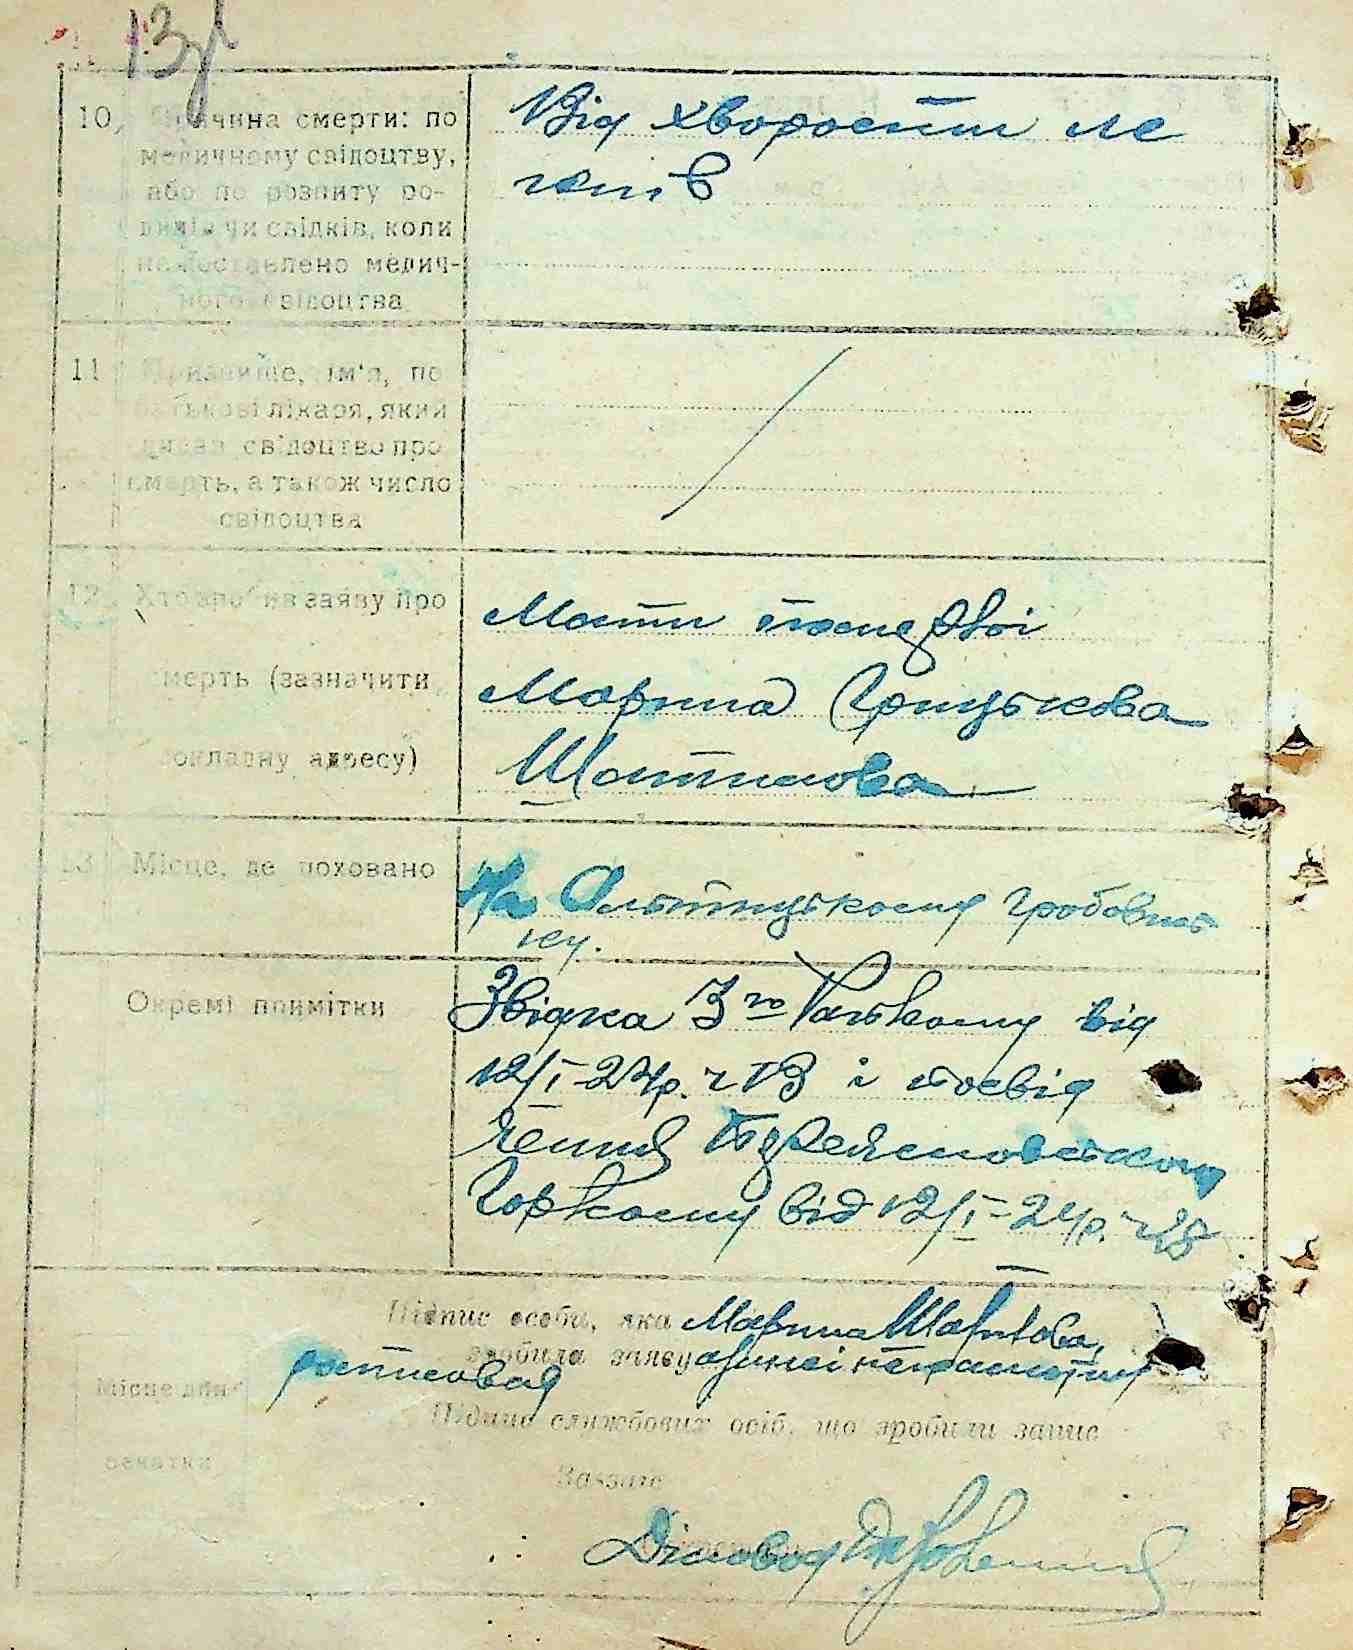 13
10, Причина смерти: по
медичному свідоцтву,
або по розпиту ро-
дичів чи свідків, коли
не поставлено медич-
ного свідоцтва
Від хворости ле
генів
11 Призвище, ім'я, по
батькові лікаря, який
видав свідоцтво про
смерть, а також число
свідоцтва
12 Хто зробив заяву про
смерть (зазначити
докладну адресу)
Мати
Марина Грицькова
Шаттилова
13 Місце, де поховано
На гробовись
ку.
Окремі примітки
Звідка 3го Райвкому від
12/І-24р. ч 13 і посвід
чення
Горвкому від 12/І-24р. ч
Підпис особи, яка
зробила заяву
Марина
Місце для
печатки
Підпис службових осіб, що зробили запис
Зав-загс
Діловод